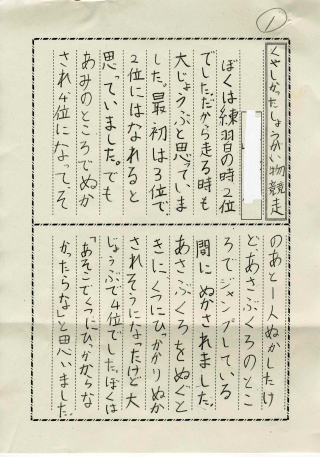 ①
くやしかったしょうがい物競走
ぼくは練習の時2位
でした。だから走る時も
大じょうぶと思っていま
した。最初は3位で、
2位にはなれると
思っていました。でも
あみのところでぬか
され4位になってそ
のあと一人ぬかしたけ
ど、あさぶくろのとこ
ろでジャンプしている
間にぬかされました。
あさぶくろをぬぐと
きにくつにひっかかりぬか
されそうになったけど大
じょうぶで4位でした。ぼくは
「あそこでくつにひっかからな
かったらな」と思いました。